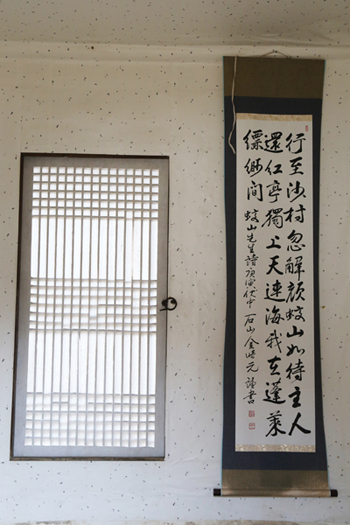 行至沙村忽解顔蛟山如待主人
還紅亭獨上天連海我在蓬萊
縹緲間 蛟山先生詩庚寅伏中 石山 金 元 書